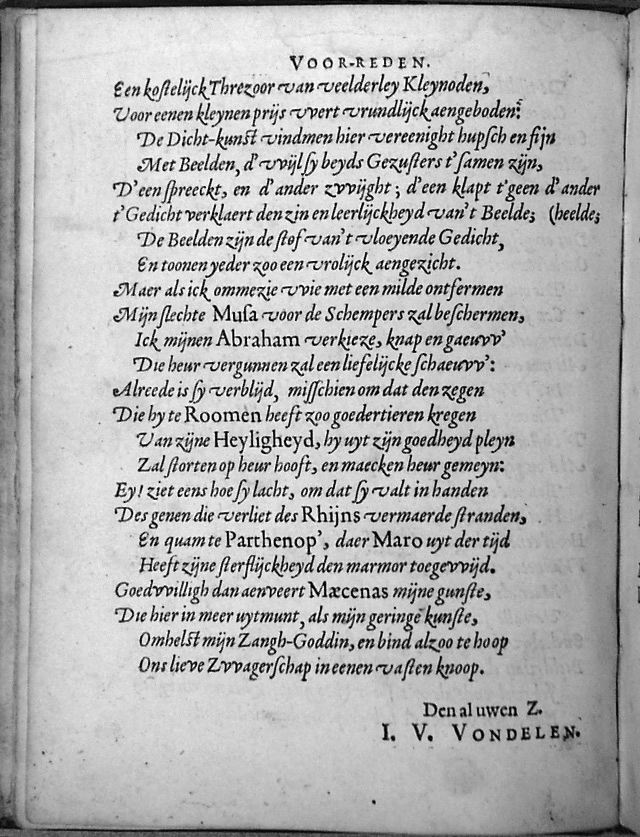 VOOR-REDEN.
Een kostelijck Threzoor van veelderley Kleynoden,
Voor eenen kleynen prijs vvert vrundlijck aengeboden:
De Dicht-kunst vindmen hier vereenight hupsch en fijn
Met Beelden, d'vvijl sy beyds Gezusters t'samen zijn,
D'een spreeckt, en d'ander zvvijght; d'een klapt t'geen d'ander
t'Gedicht verklaert den zin en leerlijckheyd van't Beelde; (heelde;
De Beelden zijn de stof van't vloeyende Gedicht,
En toonen yeder zoo een vrolijck aengezicht.
Maer als ick ommezie vvie met een milde ontfermen
Mijn slechte Musa voor de Schempers zal beschermen,
Ick mijnen Abraham verkieze, knap en gaeuvv'
Die heur vergunnen zal een liefelijcke schaeuvv':
Alreede is sy verblijd, misschien om dat den zegen
Die hy te Roomen heeft zoo goedertieren kregen
Van zijne Heyligheyd, hy uyt zijn goedheyd pleyn
Zal storten op heur hooft, en maecken heur gemeyn:
Ey! ziet eens hoe sy lacht, om dat sy valt in handen
Des genen die verliet des Rhijns vermaerde stranden,
En quam te Parthenop', daer Maro uyt der tijd
Heeft zijne sterflijckheyd den marmor toegevvijd.
Goedvvilligh dan aenveert Mæcenas mijne gunste,
Die hier in meer uytmunt, als mijn geringe kunste,
Omhelst mijn Zangh-Goddin, en bind alzoo te hoop
Ons lieve Zvvagerschap in eenen vasten knoop.
Den al uwen Z.
I. V. VONDELEN.